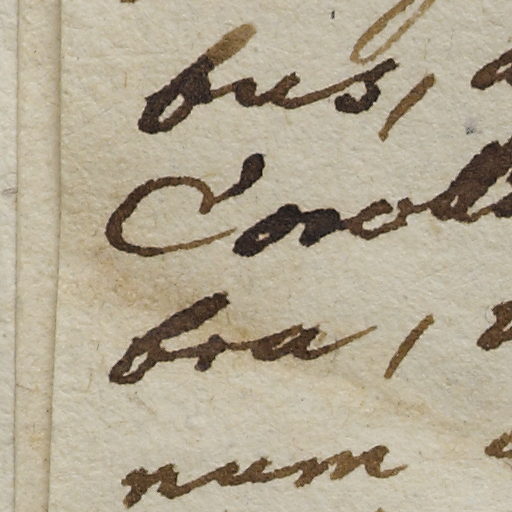 bus,
Coroll
bra,
num